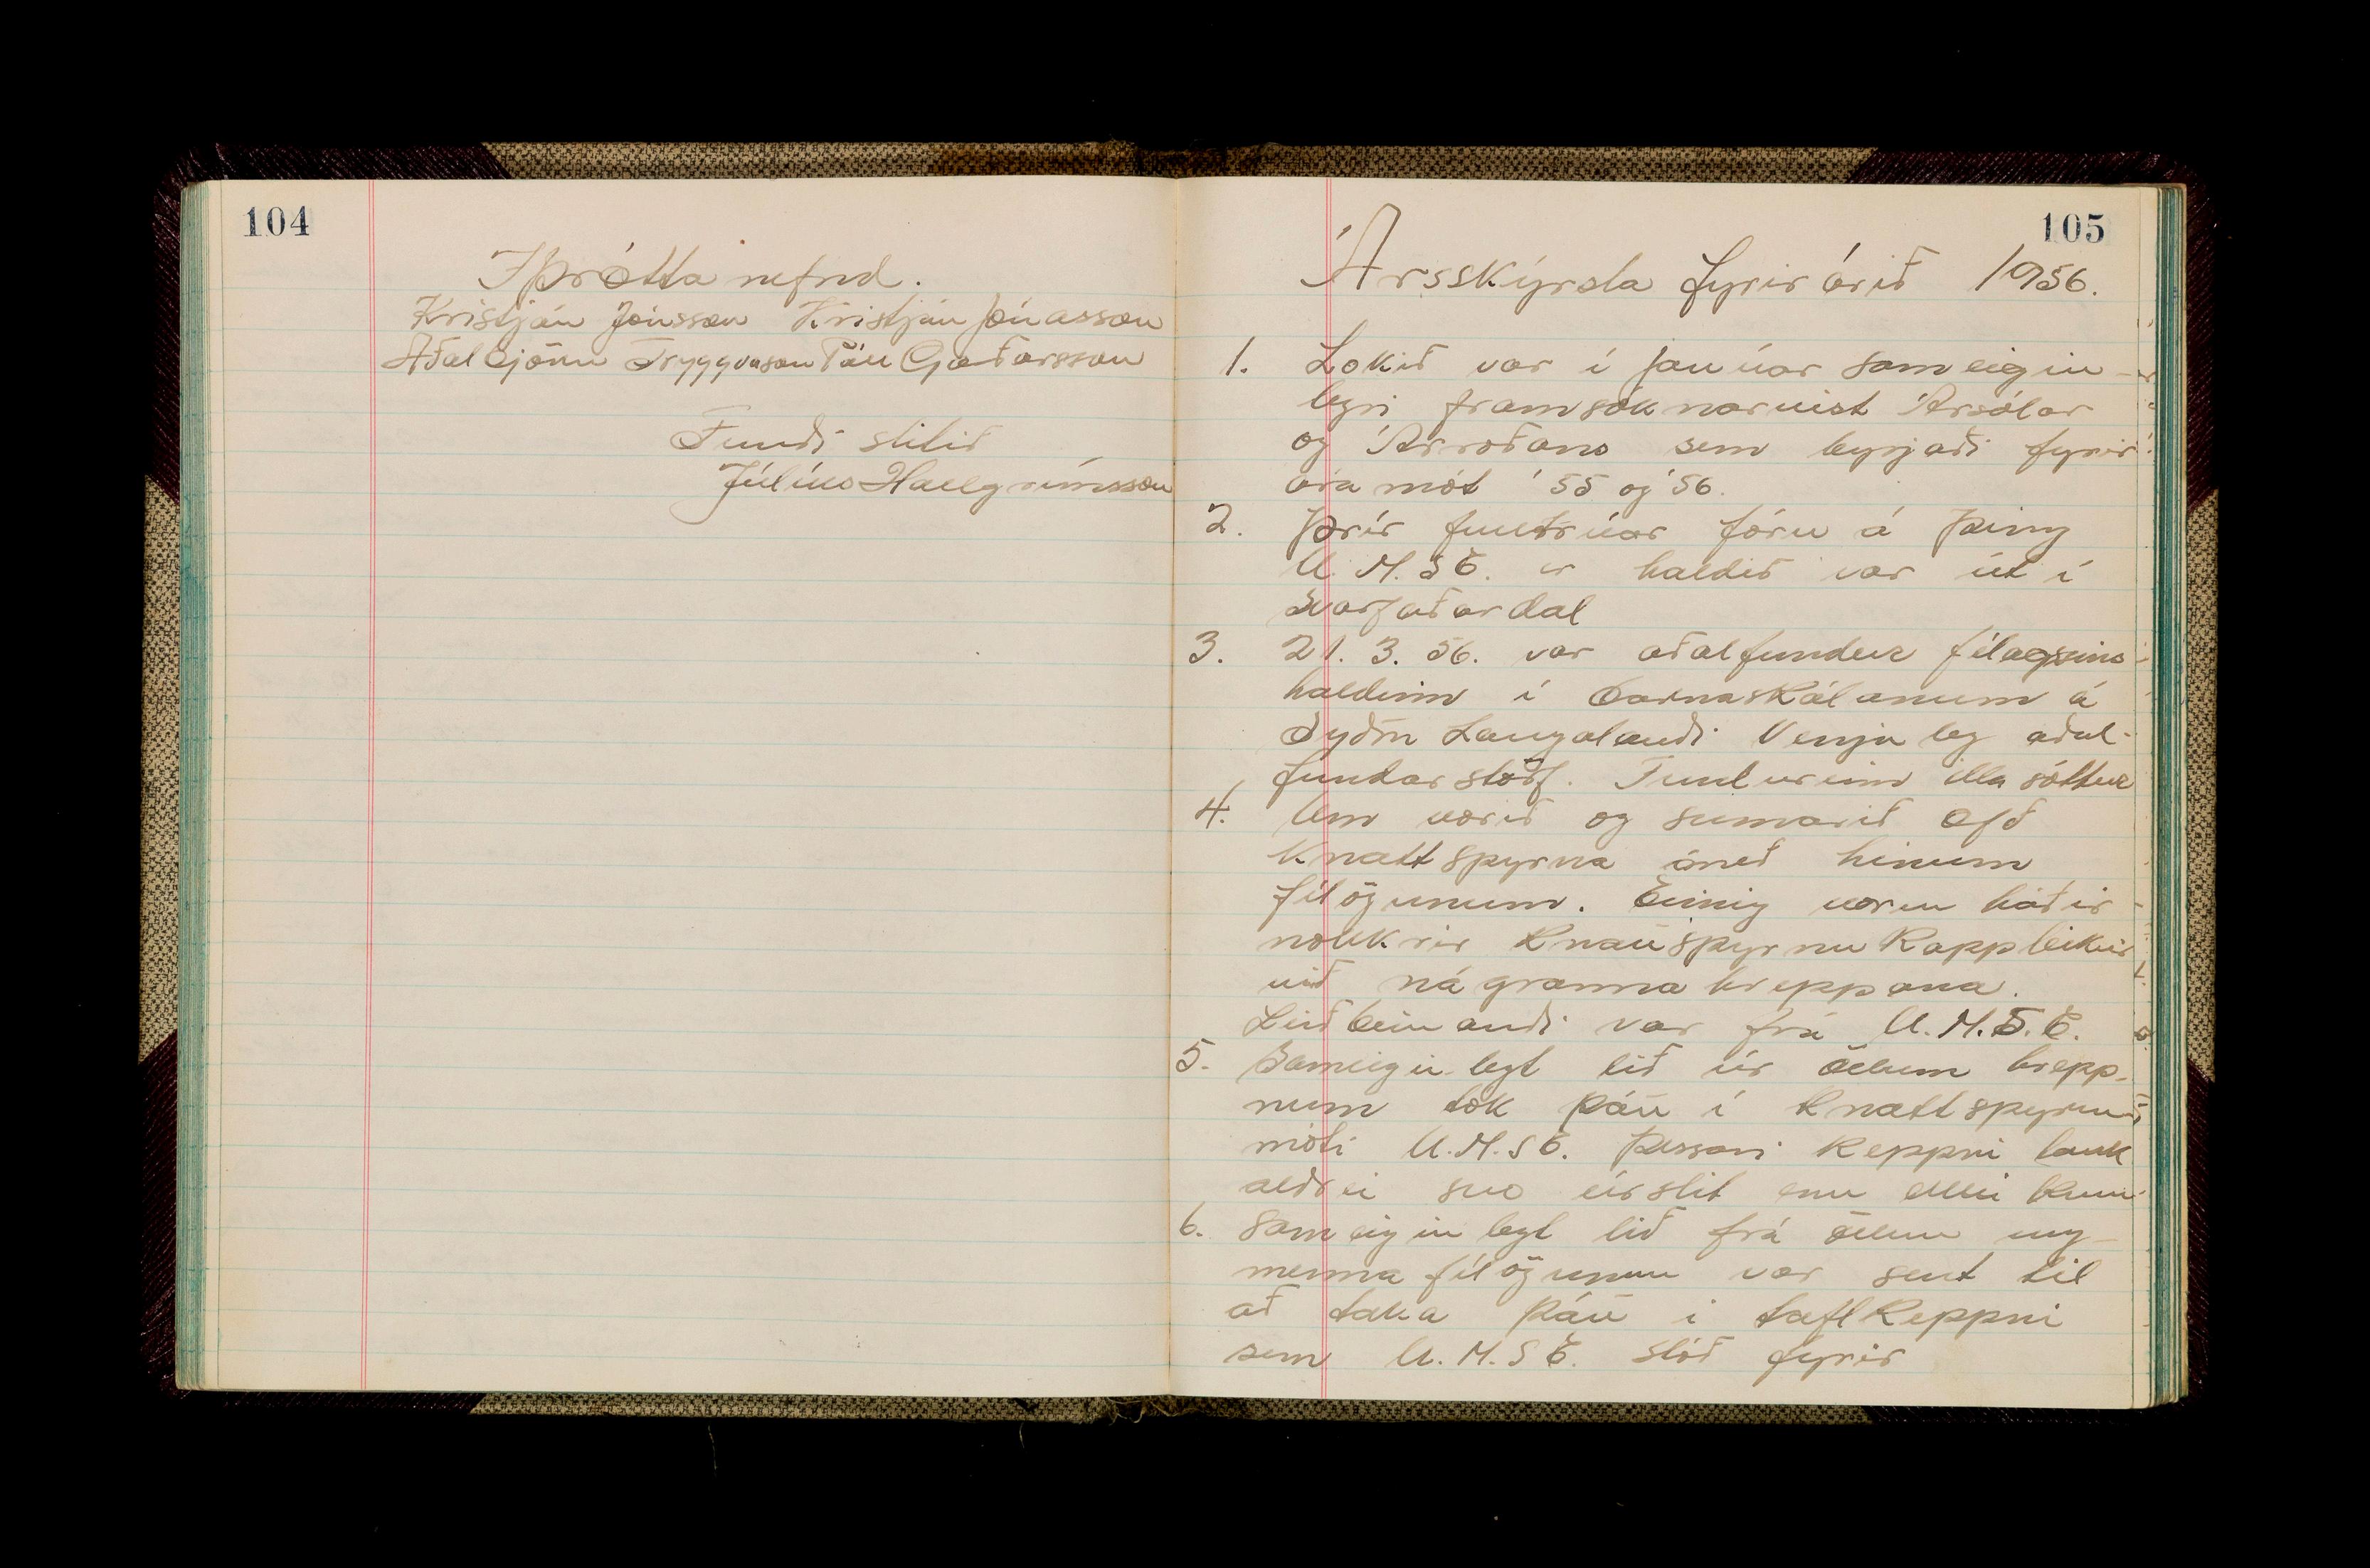 104
Íþrótta nefnd.
Kristján Jónsson Kristján Jónasson
Aðalbjörn Tryggvason Páll Garðarsson
Fundi slitið
Júlíus Hallgrímsson
105
Ársskýrsla fyrir árið 1956.
1. Lokið var í janúar sameigin-
legri framsóknarvist Ársólar
og Árroðans sem byrjaði fyrir
áramót '55 og '56.
2. Þrír fulltrúar fóru á þing
U.M.S.E. er haldið var út í
Svarfaðardal
3. 21. 3. 56. var aðalfundur félagsins
haldinn í barnaskólanum á
Syðra Laugalandi Venjuleg aðal-
fundarstörf. Fundurinn illa sóttur
4. Um vorið og sumarið æfð
knattspyrna með hinum
félögunum. Einnig voru háðir
nokkrir knattspyrnu kappleikir
við nágranna hreppana.
Leiðbeinandi var frá U.M.S.E.
5. Sameiginlegt lið úr öllum hrepp-
num tók þátt í knattspyrnu
móti U.M.S.E. Þessari keppni lauk
aldrei svo úrslit eru ekki kunn
6. Sameiginlegt lið frá öllum ung-
menna félögunum var sent til
að taka þátt í taflkeppni
sem U.M.S.E. stóð fyrir